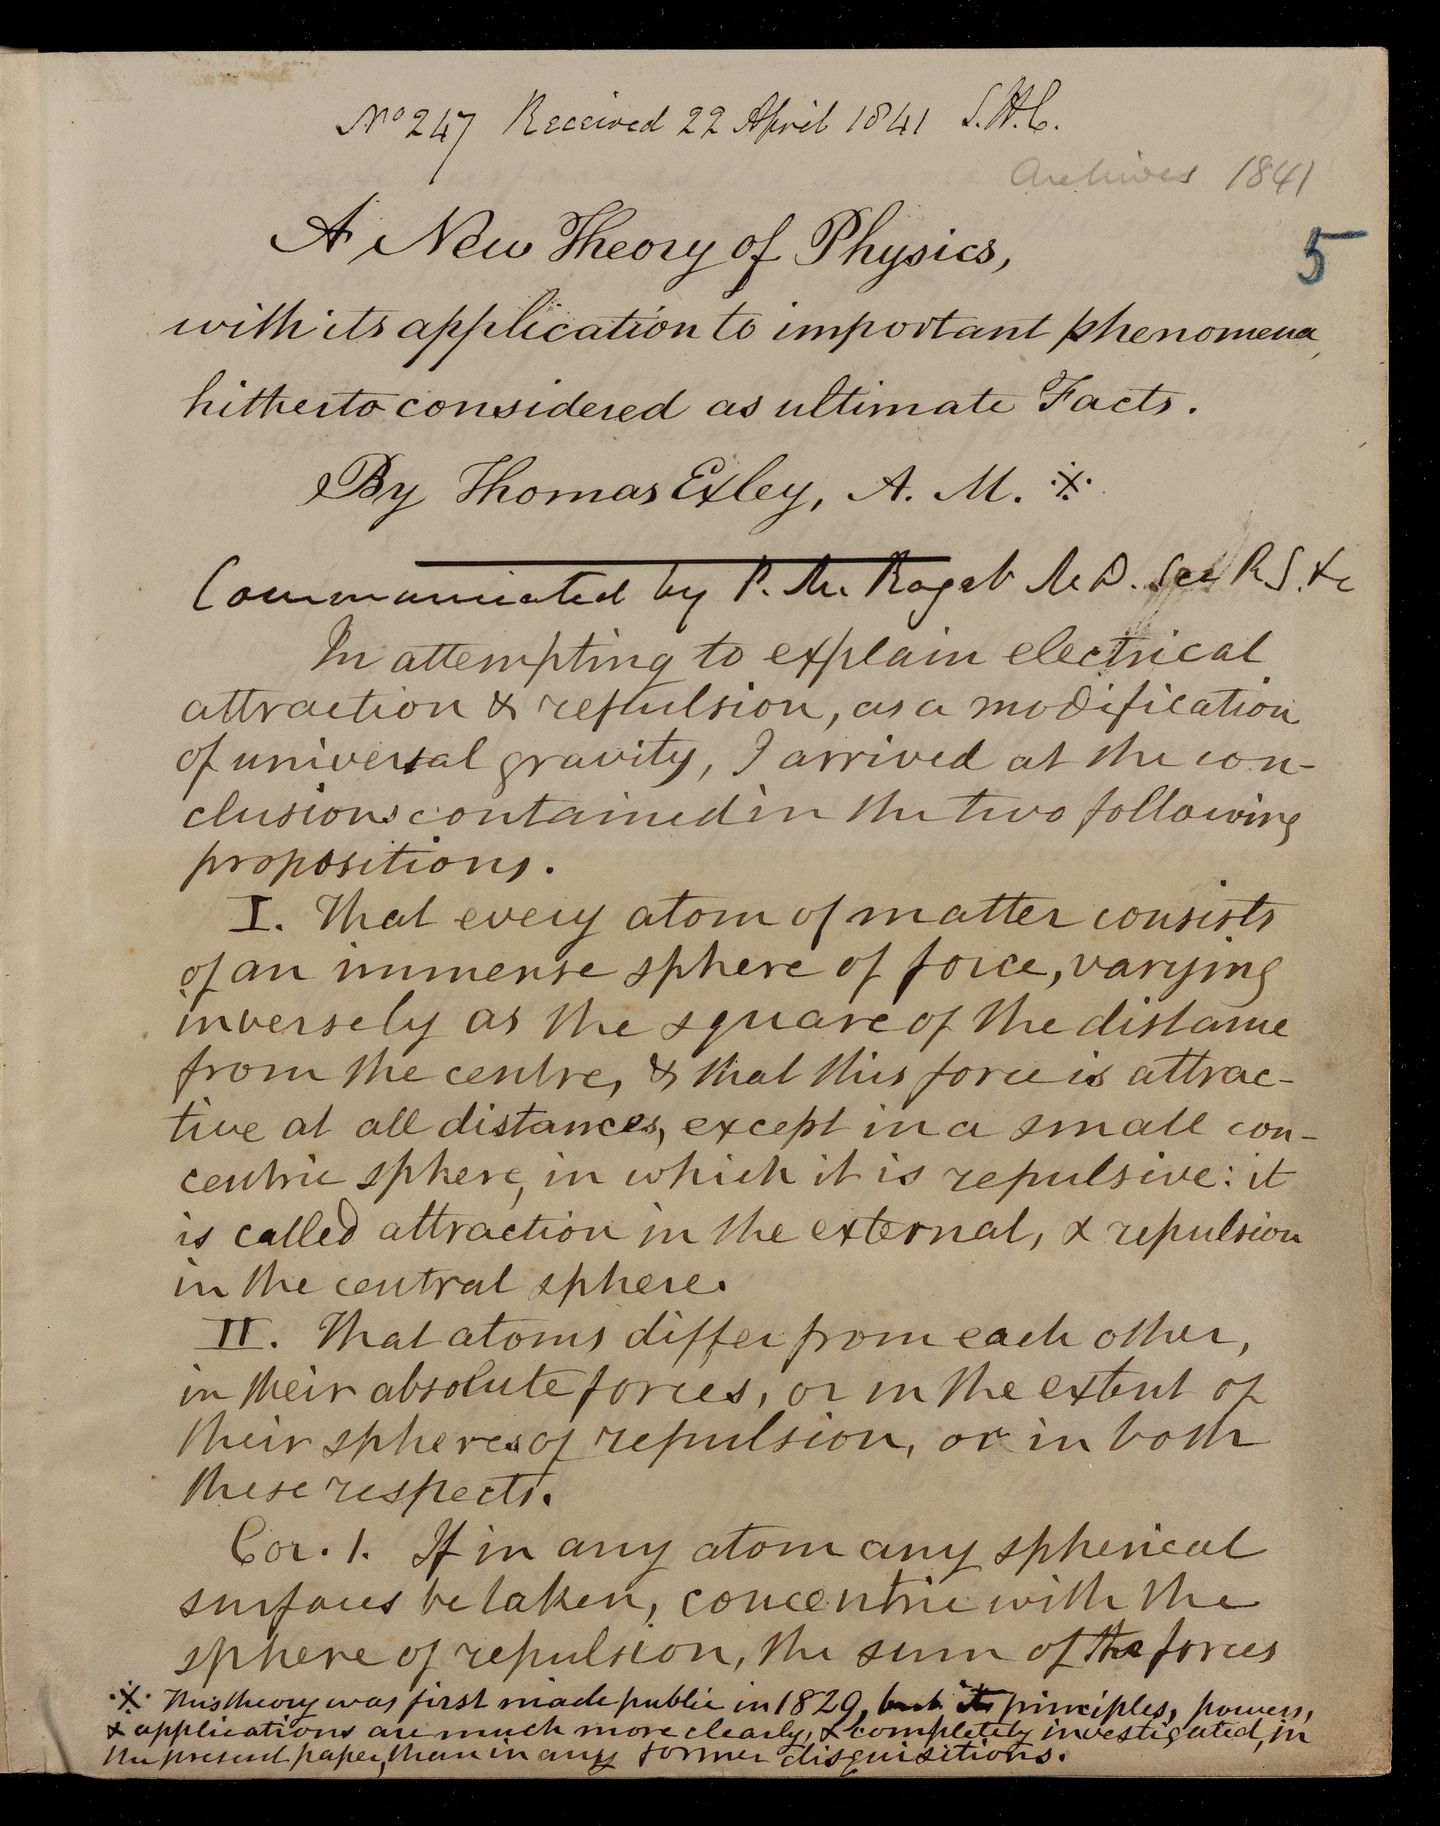 No 247 Received 22 April 1841 S.H.C.
Archives 1841
5
A New Theory of Physics,
with its application to important phenomena,
hitherto considered as ultimate Facts.
By Thomas Exley, A. M. ※
Communicated by P. M. Roget M.D. Sec R.S. &c
In attempting to explain electrical
attraction & repulsion, as a modification
of universal gravity, I arrived at the con-
clusions contained in the two following
propositions.
I. That every atom of matter consists
of an immense sphere of force, varying
inversely as the square of the distance
from the centre, & that this force is attrac-
tive at all distances, except in a small con-
centric sphere, in which it is repulsive: it
is called attraction in the external, & repulsion
in the central sphere.
II. That atoms differ from each other,
in their absolute forces, or in the extent of
their spheres of repulsion, or in both
these respects.
Cor. 1. If in any atom any spherical
surfaces be taken, concentric with the
sphere of repulsion, the sum of the forces
※ This theory was first made public in 1829, but its principles, powers,
& applications are much more clearly, & completely investigated, in
the present paper, than in any former disquisitions.